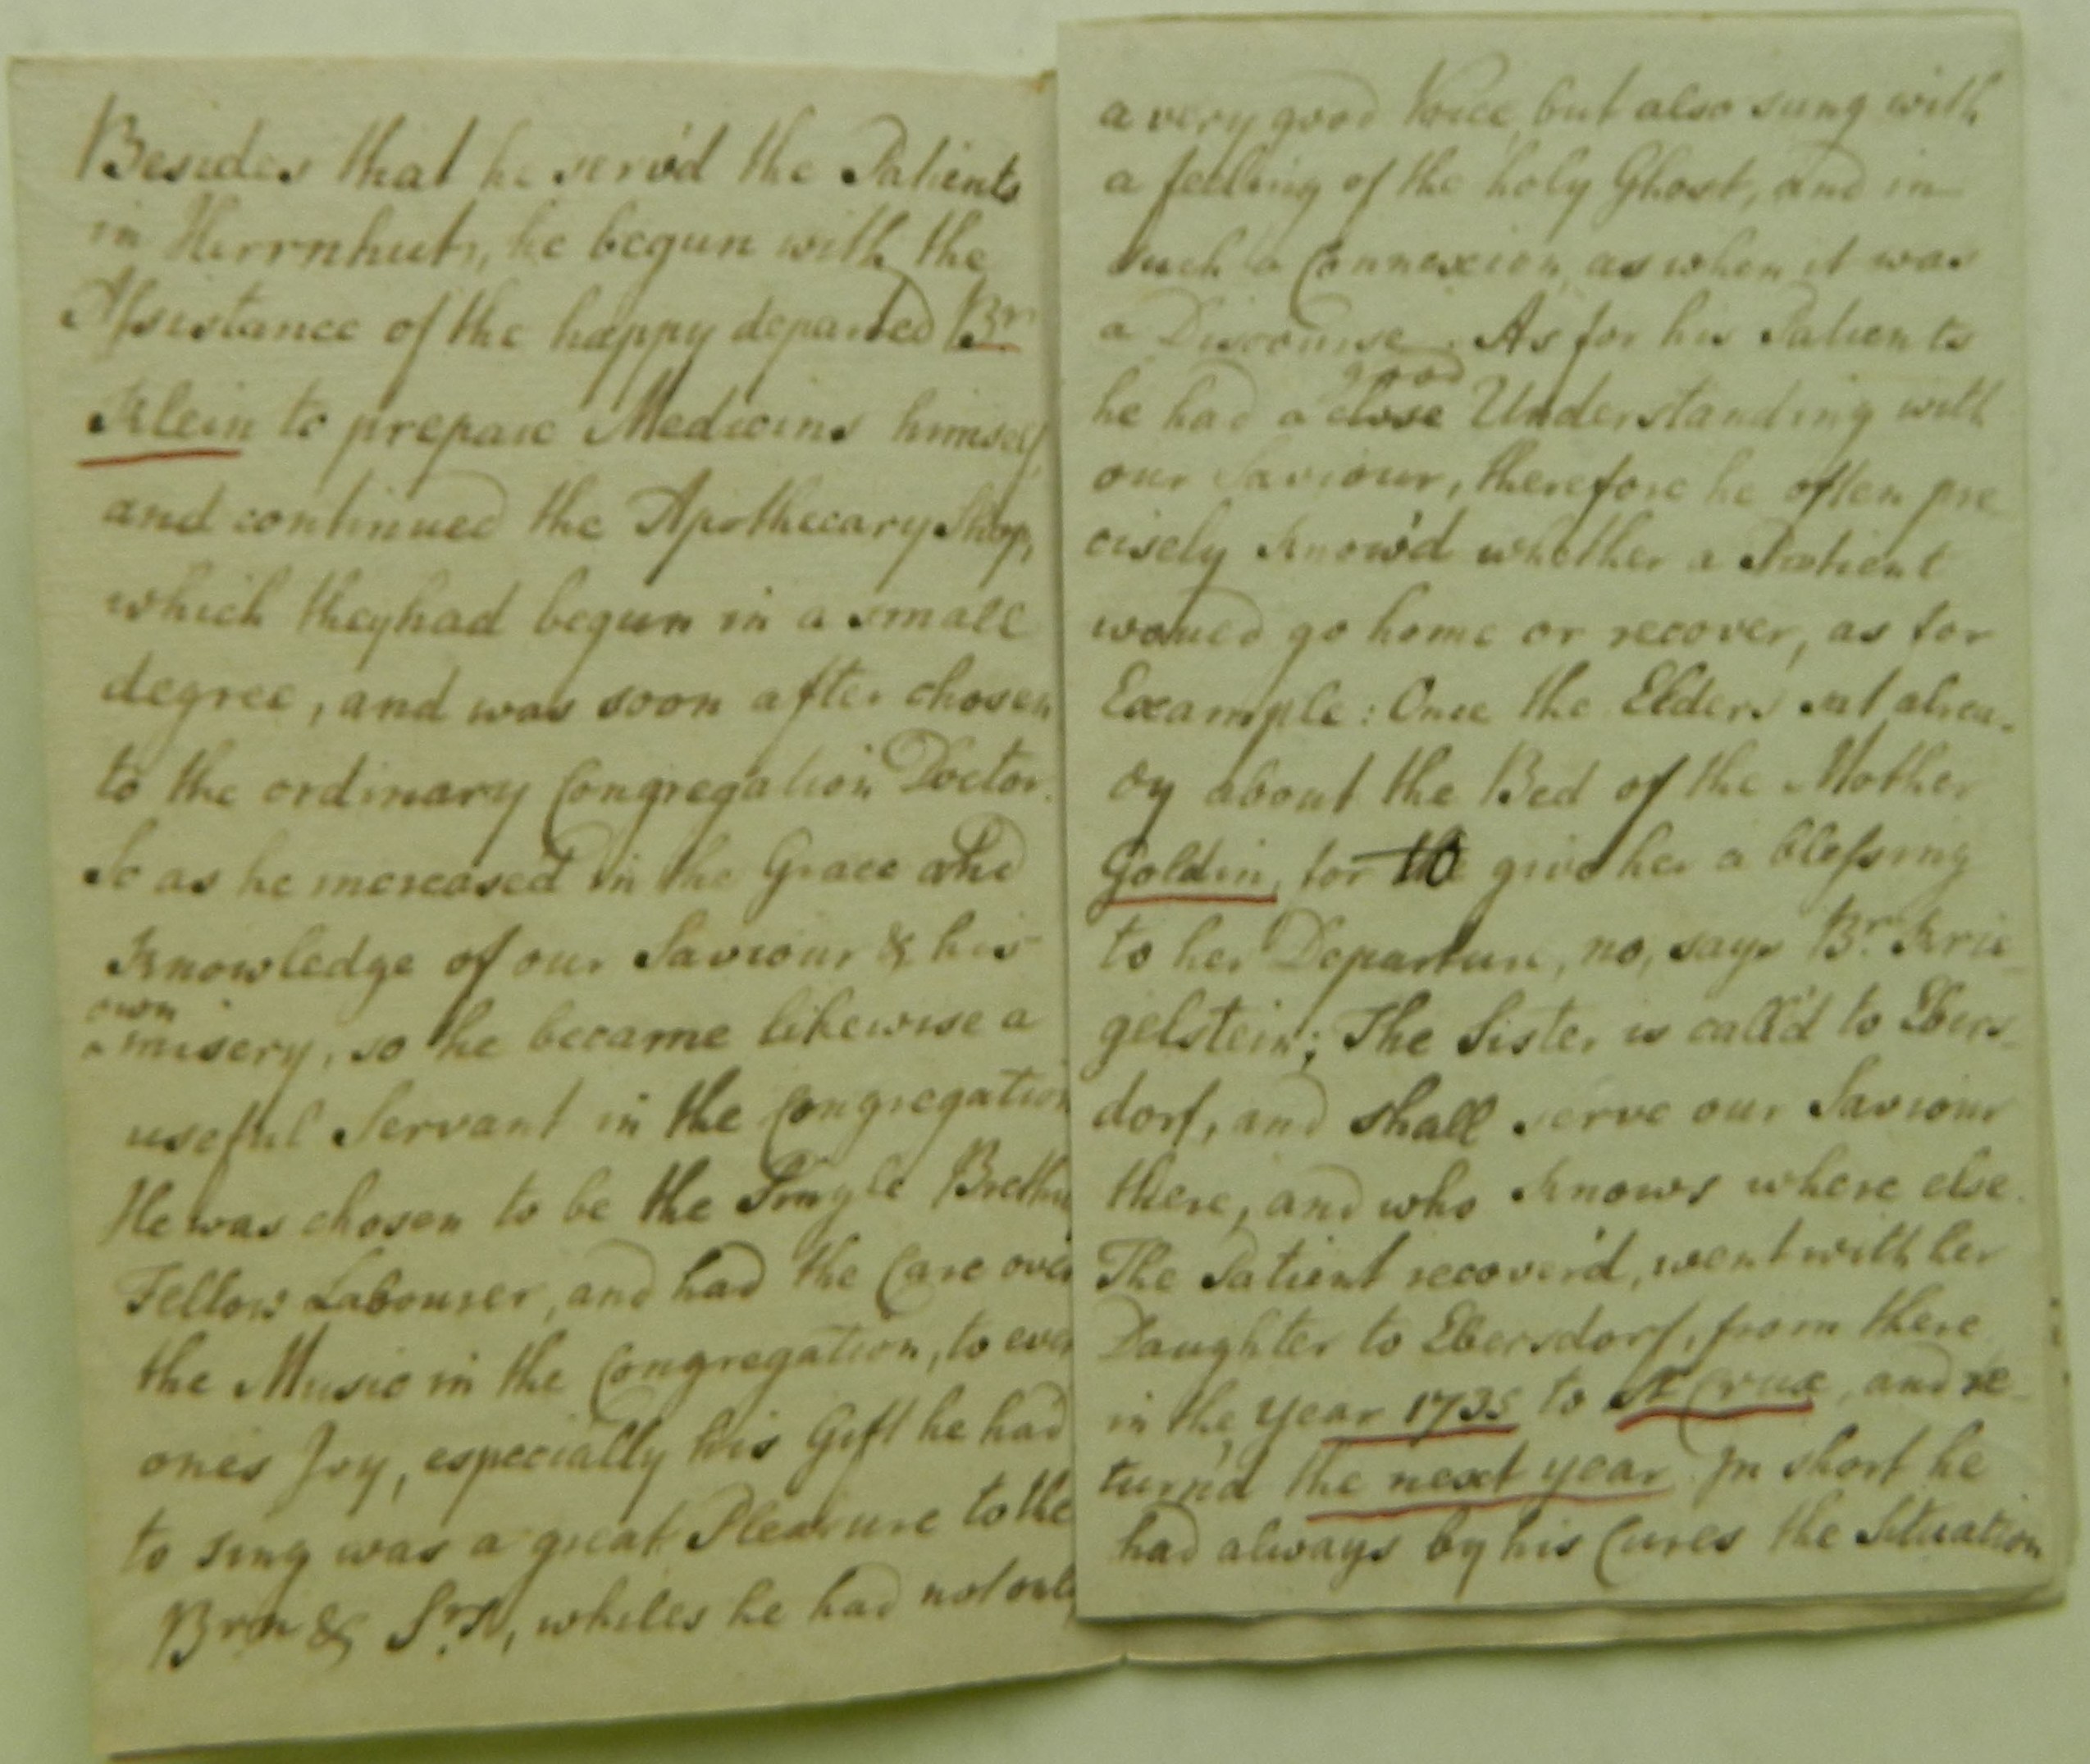 Besides that he serv'd the Patients
in Herrnhut, he begun with the
Assistance of the happy departed Br.
Klein to prepare Medicins himself
and continued the Apothecary Shop,
which they had begun in a small
degree, and was soon after chosen
to the ordinary Congregation Doctor.
So as he increased in the Grace and
Knowledge of our Saviour & his
own
misery, so he became likewise a
useful Servant in the Congregation
He was chosen to be the Single Brethre
Fellow Labourer, and had the Care over
the Music in the Congregation, to ever
ones Joy, especially his Gift he had
to sing was a great Pleasure to the
Brn & Srs, whiles he had not only
a very good Voice, but also sung with
a feeling of the holy Ghost, and in
such a Connexion, as when it was
a Discourse. As for his Patients
good
he had a close Understanding with
our Saviour, therefore he often pre
cisely know'd whether a Patient
woued go home or recover, as for
Example: Once the Elders sat alrea-
dy about the Bed of the Mother
Goldin, for to give her a blessing
to her Departure, no, says Br. Krie
gelstein; The Sister is call'd to Ebers-
dorf, and shall serve our Saviour
there, and who knows where else.
The Patient recover'd, went with her
Daughter to Ebersdorf, from there
in the Year 1735 to St Crux, and re-
turn'd the next year. In short he
had always by his Cures the Situation